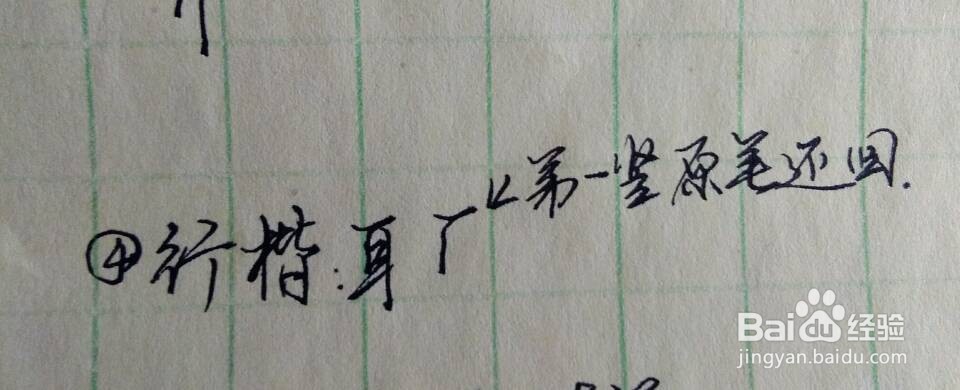 ④行楷:耳 厂←第一竖原笔还回.
Baidu经验
jingyan.baidu.com